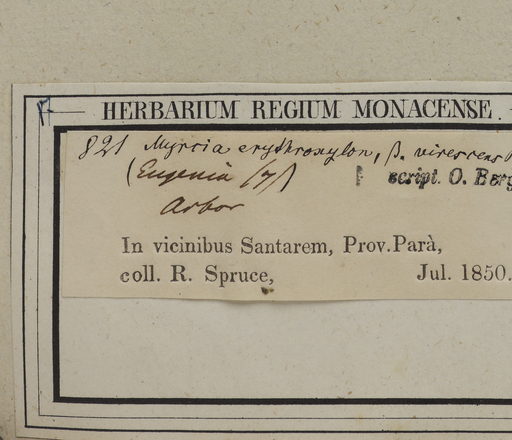 HERBARIUM REGIUM MONACENSE.
821 Myrcia erythroxylon, β. virescens
(Eugenia (7)) script. O. Berg
Arbor
In vicinibus Santarem, Prov. Parà,
coll. R. Spruce, Jul. 1850.